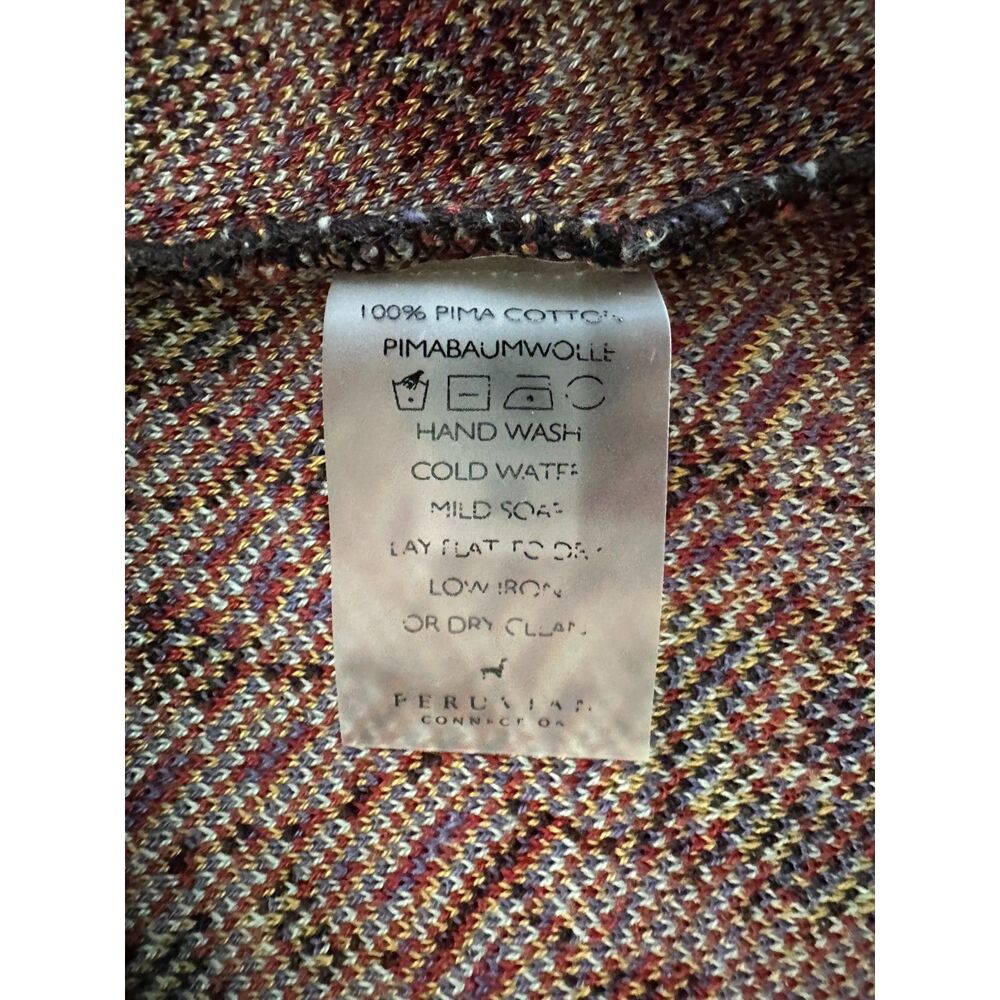 100% PIMA COTTON
PIMABAUMWOLLE
HAND WASH
COLD WATER
MILD SOAP
LAY FLAT TO DRY
LOW IRON
OR DRY CLEAN
PERUVIAN
CONNECTION